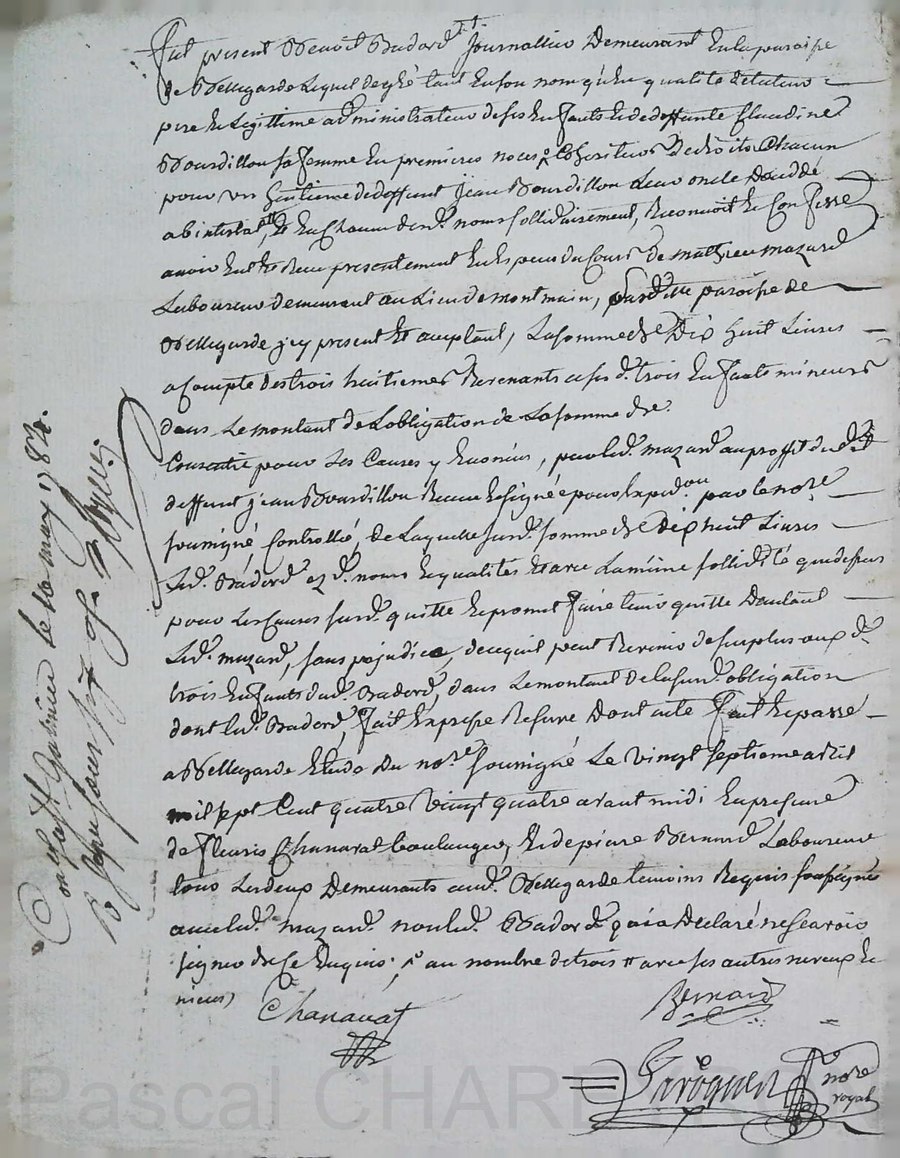 fut present Benoit Badard journallier Demeurant En la paroisse
de Bellegarde Lequel de gré tant En son nom qu'En qualité de tuteur
pere Et Legittime administrateur de ses Enfants Et de deffunte Claudine
Bourdillon sa femme En premieres noces Coheritiers De droits Chacun
pour un huitieme de deffunt jean Bourdillon Leur oncle Décédé
abintestat, Et En Chacun desd. noms sollidairement, Reconnoit Et Confesse
avoir Eut Et Reçu presentement En Especes du Cours De mathieu mazard
Laboureur demeurant au Lieu de montmain, susditte paroisse de
Bellegarde jcy present Et acceptant, La somme de Dix huit Livres
a Compte des trois huitiemes Revenants a sesd. trois Enfants mineurs
dans Le montant de L'obligation de La somme de
Consentie pour Les Causes y Enoncées, par led. mazard au proffit dud.
deffunt jean Bourdillon Recue Et signée pour Expedon par le nore
soussigné Controllé, de Laquelle susd. somme de dix huit Livres
Led. Badard ezd. noms Et qualités Et avec La même sollidité que dessus
pour Les Causes susd. quitte Et promet faire tenir quitte Envers tous
Led. mazard, sans préjudice, de ce qui peut Revenir de surplus aux d.
trois Enfants dud. Badard, dans Le montant de la susd. obligation
dont led. Badard, fait Expresse Reserve Dont acte fait Et passé
a Bellegarde Etude Du nore soussigné Le vingt septieme avril
mil sept Cent quatre vingt quatre avant midi En presence
de fleuris Chanavat boulanger, Et de pierre Bernard Laboureur
tous Les deux Demeurants aud. Bellegarde temoins Requis soussignés
avec led. mazard non led. Badard qui a Declaré ne sçavoir
signer de ce Enquis; au nombre de trois avec ses autres neveux Et
nieces
Chanavat
Bernard
nore
royal
Con. a St Galmier le 10 may 1784.
R
Pascal CHARD